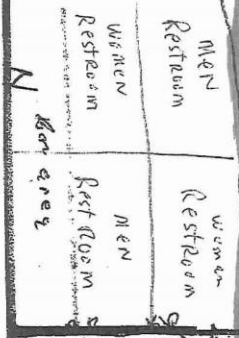 MEN
Restroom
women
Restroom
women
Restroom
MEN
Rest Room
Bar area